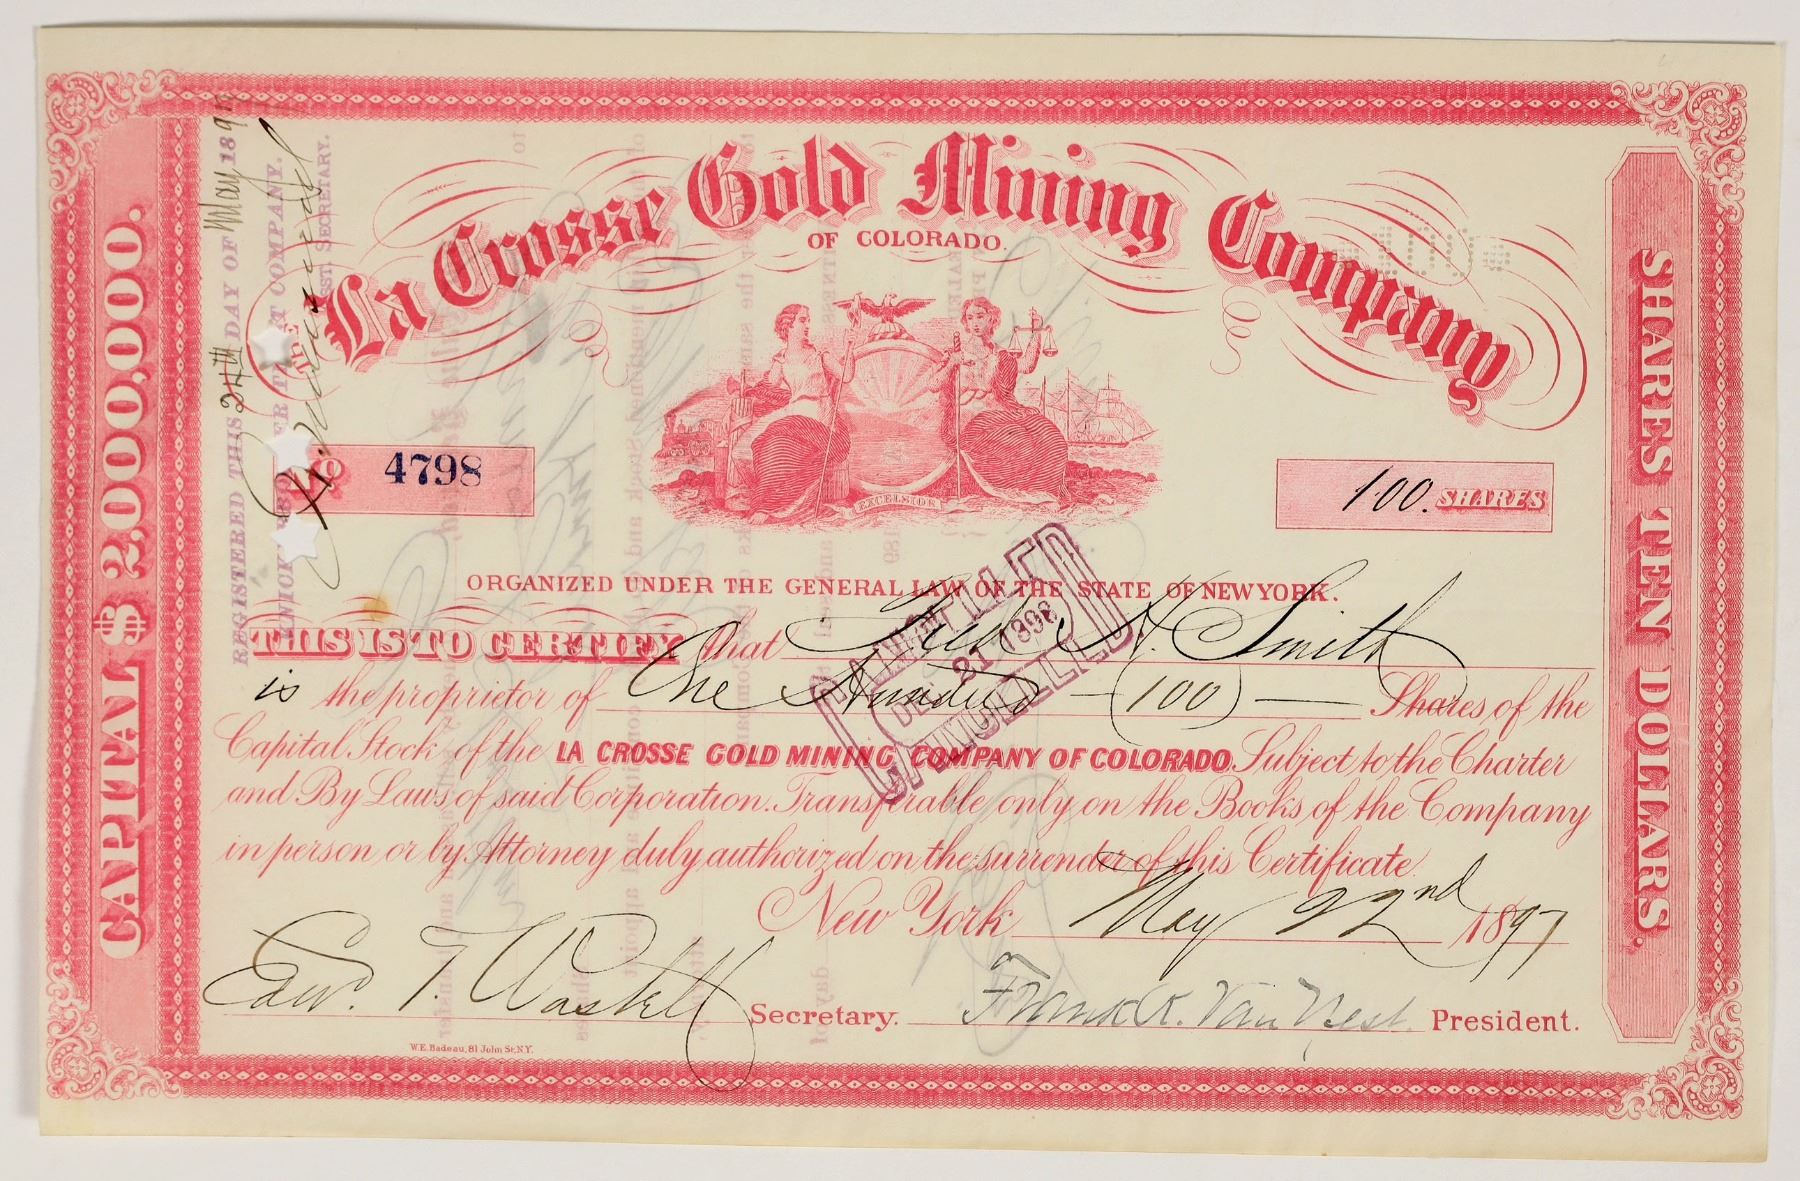 La Crosse Gold Mining Company
OF COLORADO.
CAPITAL $ 2,000,000.
SHARES TEN DOLLARS.
REGISTERED THIS 24th DAY OF May 1897
KNICKERBOCKER TRUST COMPANY.
ASST. SECRETARY.
No 4798
100. SHARES
EXCELSIOR
ORGANIZED UNDER THE GENERAL LAW OF THE STATE OF NEW YORK.
THIS IS TO CERTIFY that Fred. H. Smith
is the proprietor of One Hundred — (100) — Shares of the
Capital Stock of the LA CROSSE GOLD MINING COMPANY OF COLORADO. Subject to the Charter
and By Laws of said Corporation. Transferable only on the Books of the Company
in person or by Attorney duly authorized on the surrender of this Certificate.
CANCELLED
DEC 21 1898
CANCELLED
New York May 22nd 1897
Edw. T. Waskell Secretary. Frank R. Van Nest. President.
W.E. Badeau, 81 John St. N.Y.